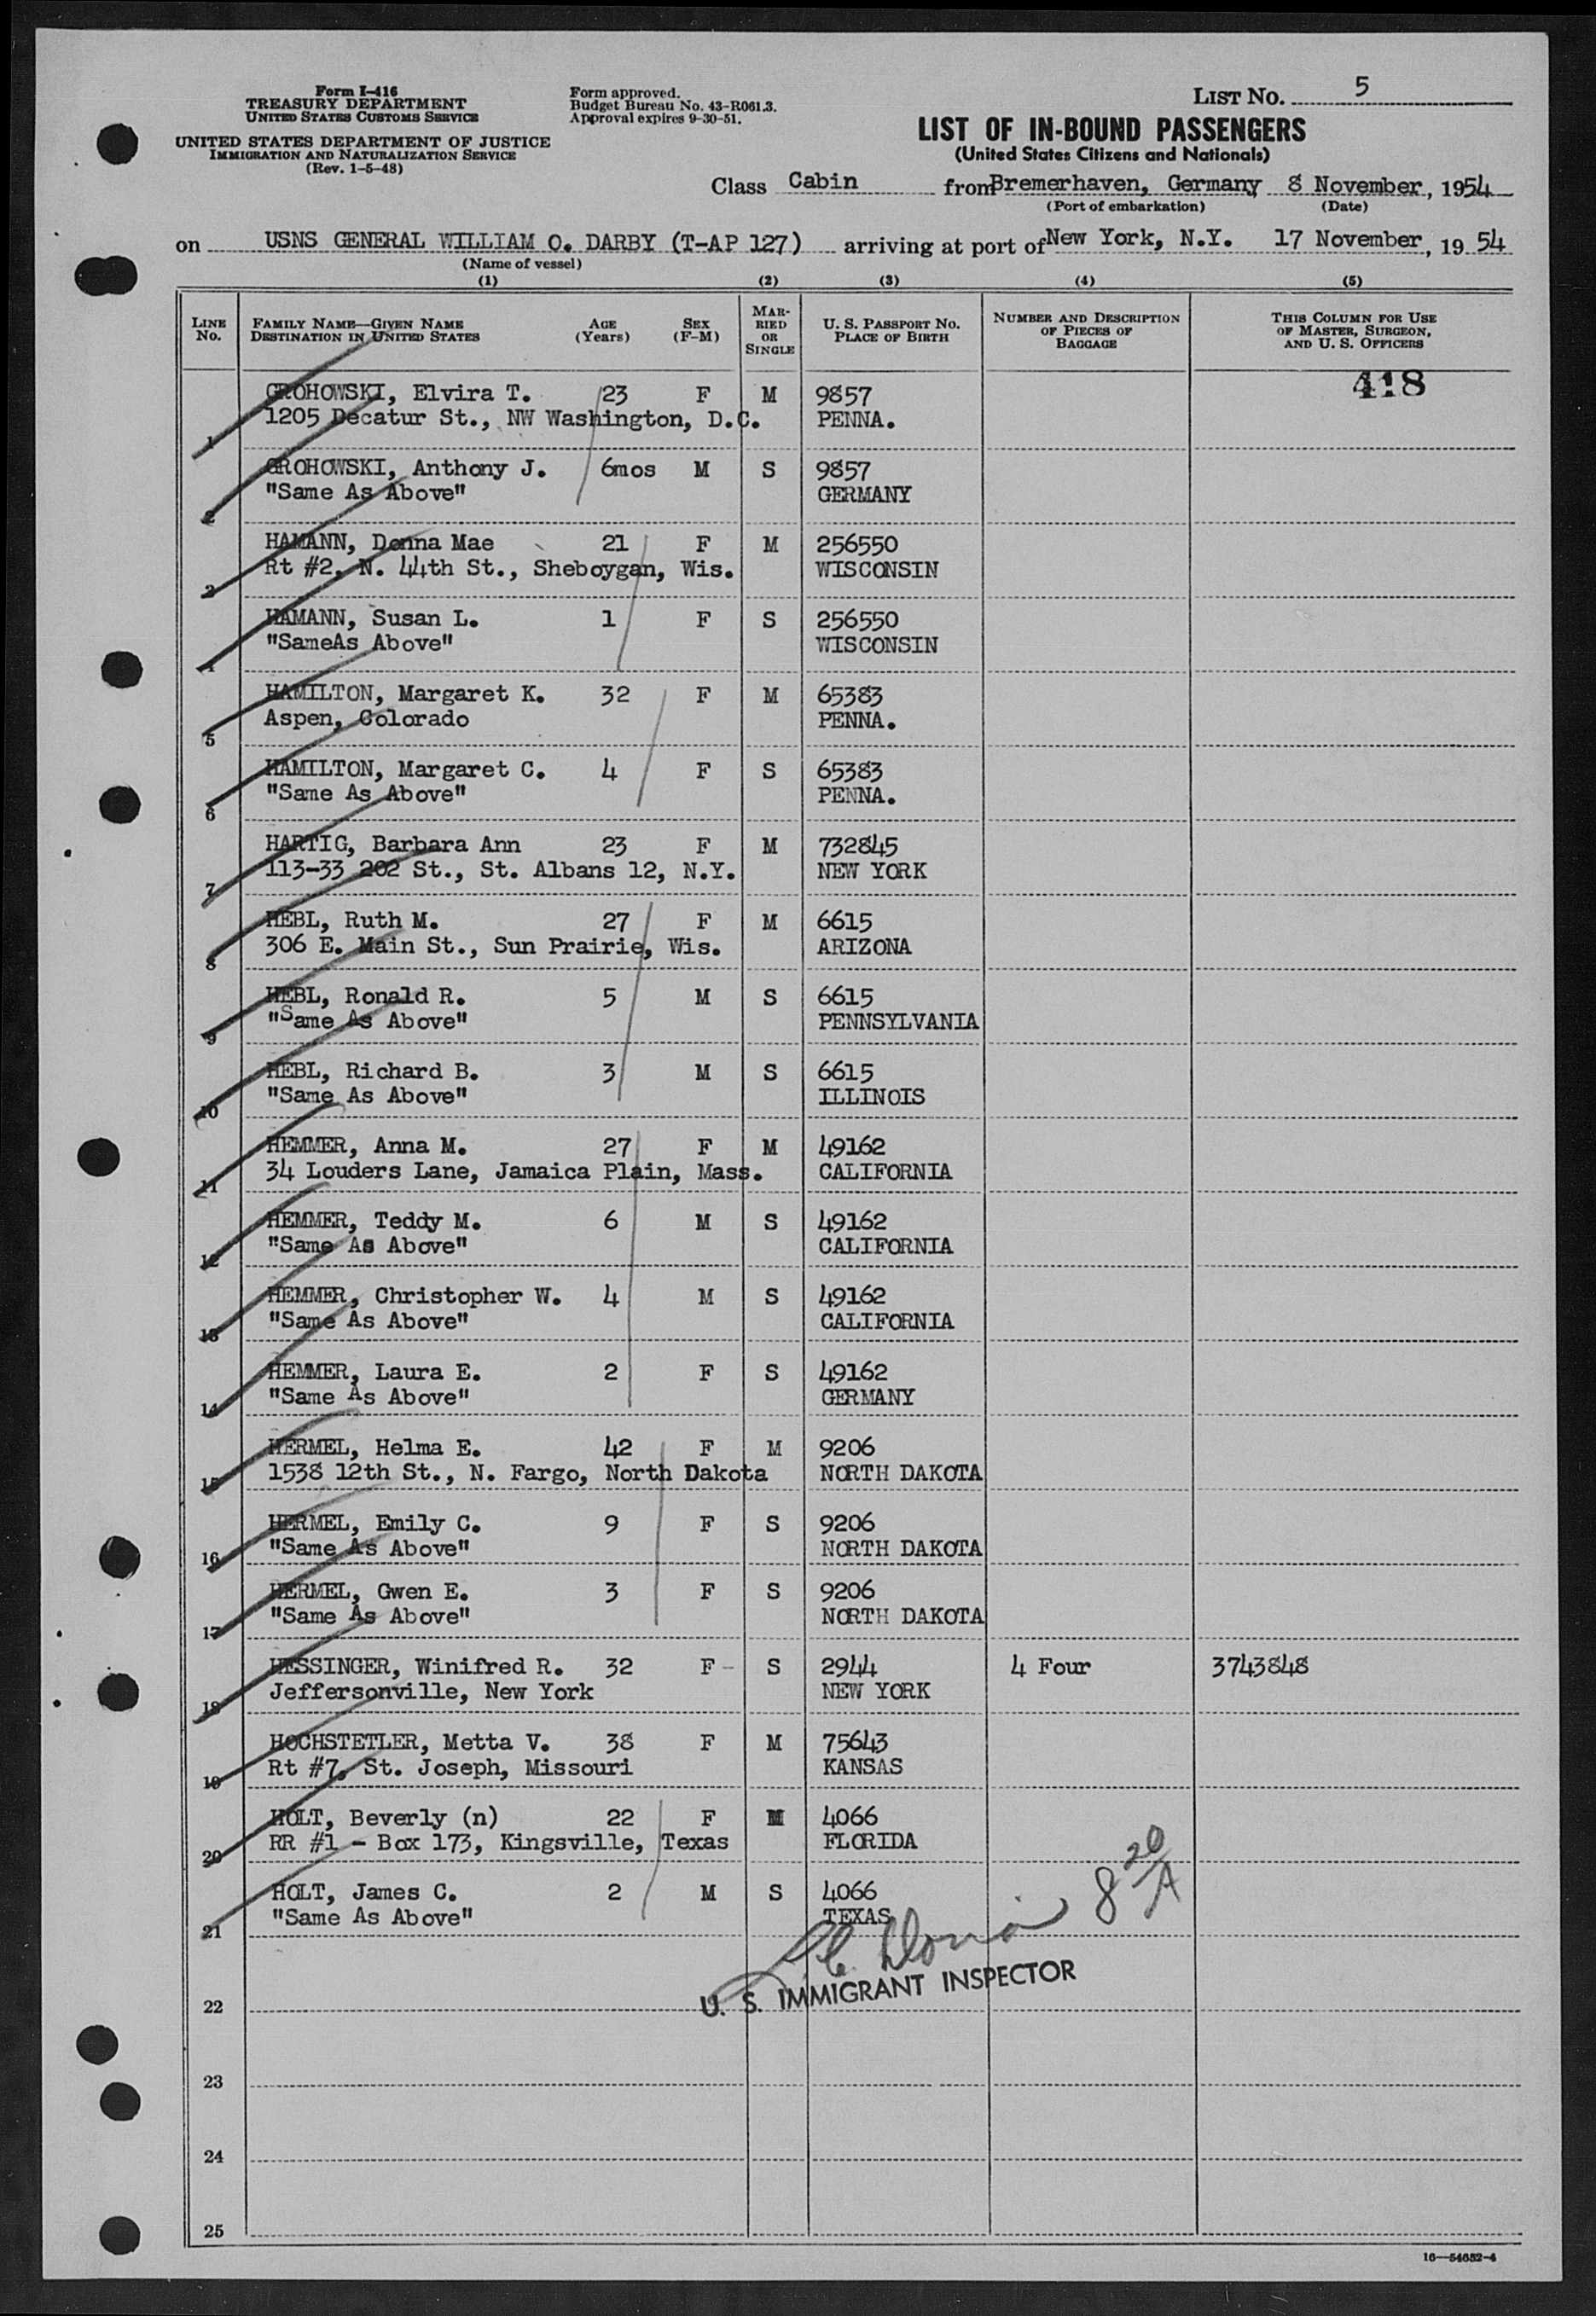 Form I-416
TREASURY DEPARTMENT
UNITED STATES CUSTOMS SERVICE
UNITED STATES DEPARTMENT OF JUSTICE
IMMIGRATION AND NATURALIZATION SERVICE
(Rev. 1-5-48)
Form approved.
Budget Bureau No. 43-R061.3.
Approval expires 9-30-51.
LIST NO. 5
LIST OF IN-BOUND PASSENGERS
(United States Citizens and Nationals)
Class Cabin from Bremerhaven, Germany, 8 November, 1954
(Port of embarkation) (Date)
on USNS GENERAL WILLIAM O. DARBY (T-AP 127) arriving at port of New York, N.Y. 17 November, 19 54
(Name of vessel)
(1) (2) (3) (4) (5)
LINE NO. FAMILY NAME—GIVEN NAME DESTINATION IN UNITED STATES AGE (Years) SEX (F-M) MARRIED OR SINGLE U. S. PASSPORT NO. PLACE OF BIRTH NUMBER AND DESCRIPTION OF PIECES OF BAGGAGE THIS COLUMN FOR USE OF MASTER, SURGEON, AND U. S. OFFICERS
418
GROHOWSKI, Elvira T. 23 F M 9857
1 1205 Decatur St., NW Washington, D.C. PENNA.
GROHOWSKI, Anthony J. 6mos M S 9857
2 "Same As Above" GERMANY
HAMANN, Donna Mae 21 F M 256550
3 Rt #2, N. 44th St., Sheboygan, Wis. WISCONSIN
HAMANN, Susan L. 1 F S 256550
4 "SameAs Above" WISCONSIN
HAMILTON, Margaret K. 32 F M 65383
5 Aspen, Colorado PENNA.
HAMILTON, Margaret C. 4 F S 65383
6 "Same As Above" PENNA.
HARTIG, Barbara Ann 23 F M 732845
7 113-33 202 St., St. Albans 12, N.Y. NEW YORK
HEBL, Ruth M. 27 F M 6615
8 306 E. Main St., Sun Prairie, Wis. ARIZONA
HEBL, Ronald R. 5 M S 6615
9 "Same As Above" PENNSYLVANIA
HEBL, Richard B. 3 M S 6615
10 "Same As Above" ILLINOIS
HEMMER, Anna M. 27 F M 49162
11 34 Louders Lane, Jamaica Plain, Mass. CALIFORNIA
HEMMER, Teddy M. 6 M S 49162
12 "Same As Above" CALIFORNIA
HEMMER, Christopher W. 4 M S 49162
13 "Same As Above" CALIFORNIA
HEMMER, Laura E. 2 F S 49162
14 "Same As Above" GERMANY
HERMEL, Helma E. 42 F M 9206
15 1538 12th St., N. Fargo, North Dakota NORTH DAKOTA
HERMEL, Emily C. 9 F S 9206
16 "Same As Above" NORTH DAKOTA
HERMEL, Gwen E. 3 F S 9206
17 "Same As Above" NORTH DAKOTA
HESSINGER, Winifred R. 32 F - S 2944 4 Four 3743848
18 Jeffersonville, New York NEW YORK
HOCHSTETLER, Metta V. 38 F M 75643
19 Rt #7, St. Joseph, Missouri KANSAS
HOLT, Beverly (n) 22 F M 4066
20 RR #1 - Box 173, Kingsville, Texas FLORIDA
HOLT, James C. 2 M S 4066
21 "Same As Above" TEXAS
8 20/A
U. S. IMMIGRANT INSPECTOR
22
23
24
25
16—54652-4